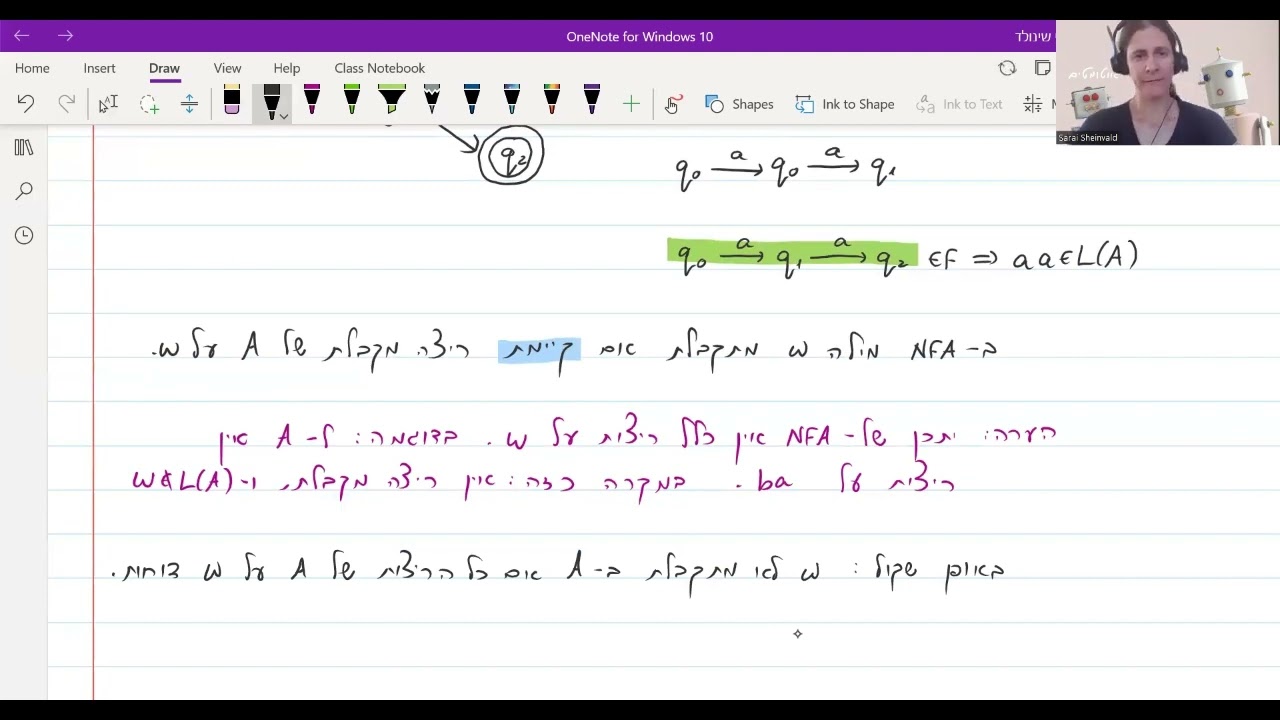 OneNote for Windows 10
י שינולד
Home Insert Draw View Help Class Notebook
Shapes Ink to Shape Ink to Text
Sarai Sheinvald
q₂
q₀ a→ q₀ a→ q₁
q₀ a→ q₁ a→ q₂ ∈F ⇒ aa∈L(A)
ב-NFA מילה w מתקבלת אם קיימת ריצה מקבלת של A על w.
הערה: יתכן של-NFA אין כלל ריצות על w. בדוגמה: ל-A אין
ריצות על ba. במקרה כזה: אין ריצה מקבלת, ו-w∉L(A)
באופן שקול: w לא מתקבלת ב-A אם כל הריצות של A על w דוחות.